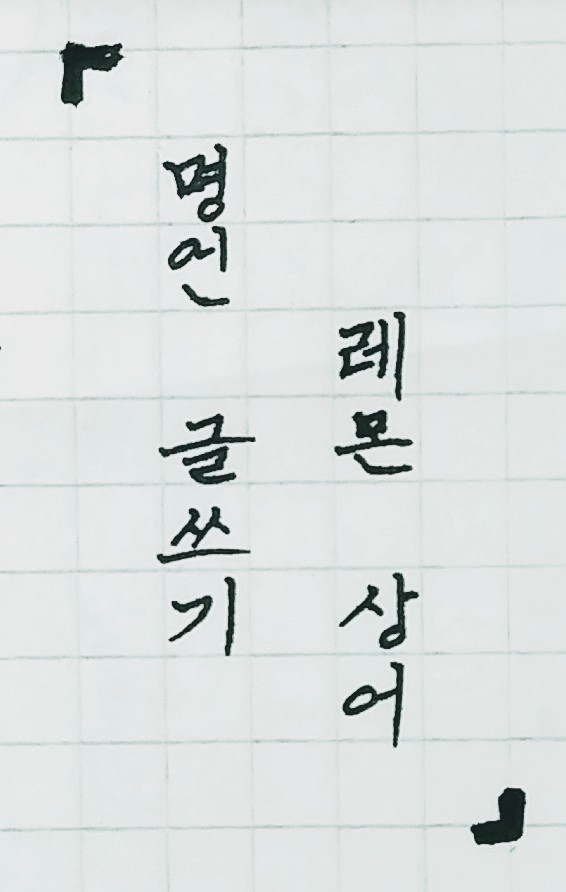 『
명언 글쓰기
레몬 상어
』